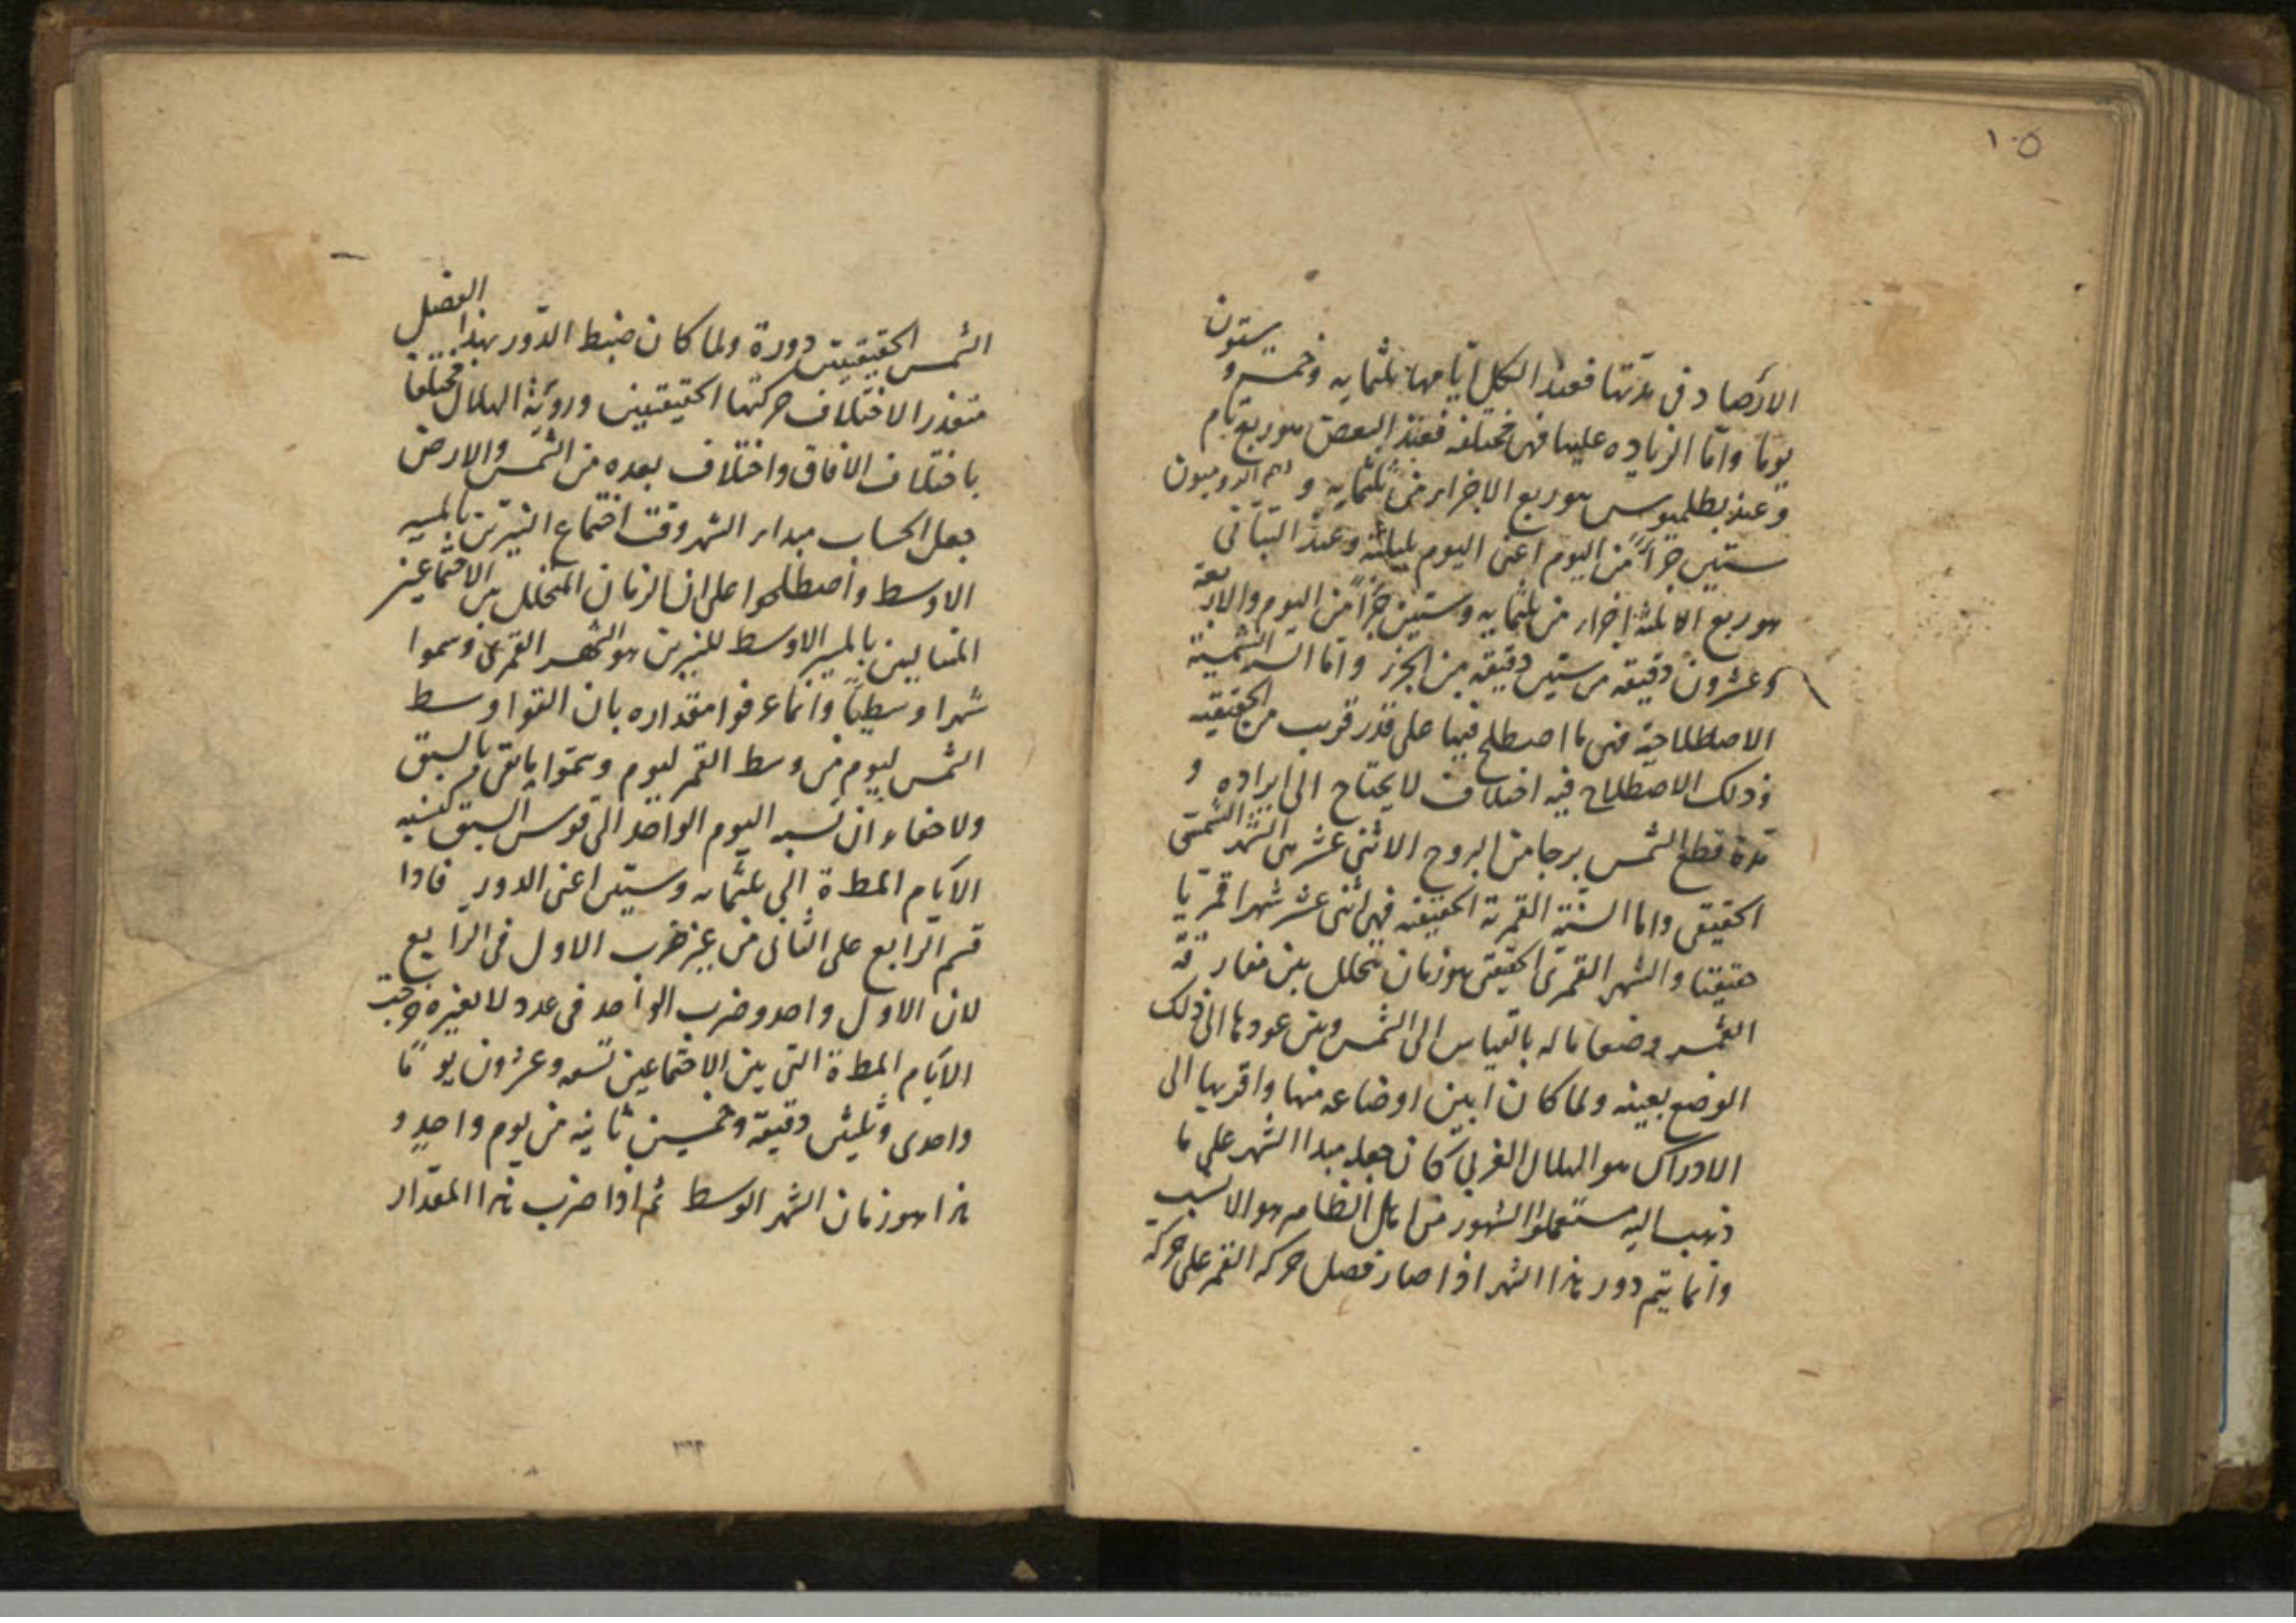 ١٠٥
الأرصاد في مدتها فعند الكل أيامها ثلثمايه وخمس و ستون
يوما واما الزياده عليها فهى مختلفه فعند البعض هو ربع تام
وعند بطلميوس هو ربع الا جزء من ثلثمايه و هم الروميون
ستين جزأ من اليوم اعنى اليوم بليلته وعند التبانى
هو ربع الا ثلثة اجزاء من ثلثمايه وستين جزأ من اليوم والاربعة
وعشرون دقيقه من ستين دقيقه من الجزء واما السنة الشمسية
الاصطلاحية فهى ما اصطلح فيها على قدر قريب من الحقيقيه
وذلك الاصطلاح فيه اختلاف لا يحتاج الى ايراده و
مدة قطع الشمس برجا من البروج الاثنى عشر هى الشهر الشمسى
الحقيقى واما السنة القمرية الحقيقيه فهى اثنى عشر شهرا قمريا
حقيقيا والشهر القمرى الحقيقى هو زمان يتخلل بين مفارقة
القمر وضعا ما له بالقياس الى الشمس وبين عودها الى ذلك
الوضع بعينه ولما كان ابين اوضاعه منها واقربها الى
الادراك هو الهلال الغربى كان جعله مبدأ الشهر على ما
ذهب اليه مستعملوا الشهور من اهل الظاهر هو الانسب
وانما يتم دور هذا الشهر اذا صار فضل حركة القمر على حركة
الشمس الحقيقيتين دورة ولما كان ضبط الدور بهذا الفضل
متعذر الاختلاف حركتها الحقيقيتين ورؤية الهلال مختلفا
باختلاف الافاق واختلاف بعده من الشمس والارض
جعل الحساب مبداء الشهر وقت اجتماع النيرين بالمسير
الاوسط واصطلحوا على ان الزمان المتخلل بين الاجتماعين
المتتاليين بالمسير الاوسط للنيرين هو الشهر القمرى وسموا
شهرا وسطيا وانما عرفوا مقداره بان القوا وسط
الشمس ليوم من وسط القمر ليوم وسموا ما بقى بالسبق
ولا خفاء ان نسبه اليوم الواحد الى قوس السبق كنسبه
الايام المط ة الى ثلثمايه وستين اعنى الدور فاذا
قسم الرابع على الثانى من غير ضرب الاول فى الرابع
لان الاول واحد وضرب الواحد فى عدد لا يغيره خرجت
الايام المط ة التى بين الاجتماعين تسعه وعشرون يوما
واحدى وثلثين دقيقة وخمسين ثانيه من يوم واحد و
هذا هو زمان الشهر الوسط ثم اذا ضرب هذا المقدار